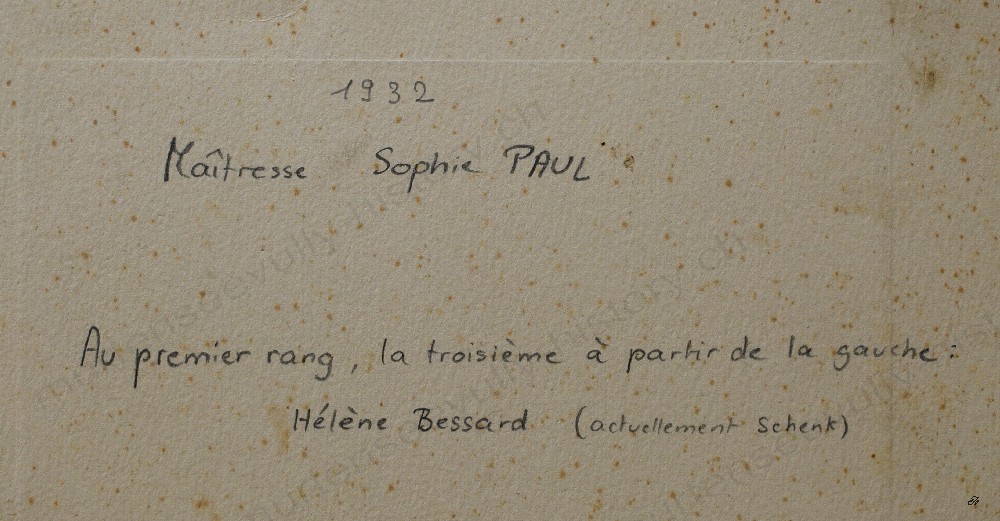 1932
Maîtresse Sophie PAUL
Au premier rang, la troisième à partir de la gauche :
Hélène Bessard (actuellement Schenk)